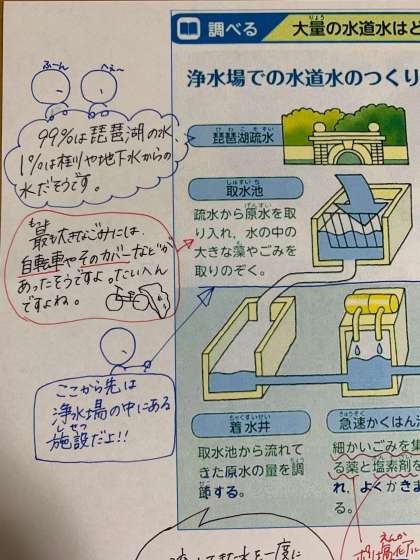 調べる 大量の水道水はど
りょう
浄水場での水道水のつくり
ふーん
へぇ〜
99%は琵琶湖の水、
1%は桂川や地下水からの
水だそうです。
びわこそすい
琵琶湖疏水
しゅすいち
取水池
疏水から原水を取
げんすい
り入れ、水の中の
大きな藻やごみを
も
取りのぞく。
もっと
最も大きなごみには、
自転車やそのカバーなどが
あったそうですよ。たいへん
ですよね。
ここから先は
浄水場の中にある
しせつ
施設だよ!!
ちゃくすいせい
着水井
取水池から流れて
きた原水の量を調
節する。
きゅうそく
急速かくはん
細かいごみを集
る薬と塩素剤を
れ、よくかきま
る。
えんか